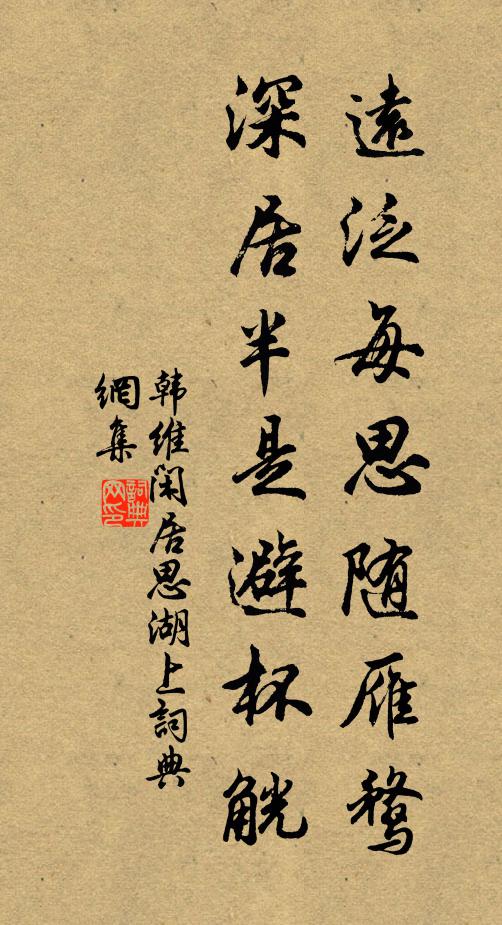 遠泛每思随雁鶩
深居半是避杯觥
韩維闲居思湖上詞典
網集
詞典網印